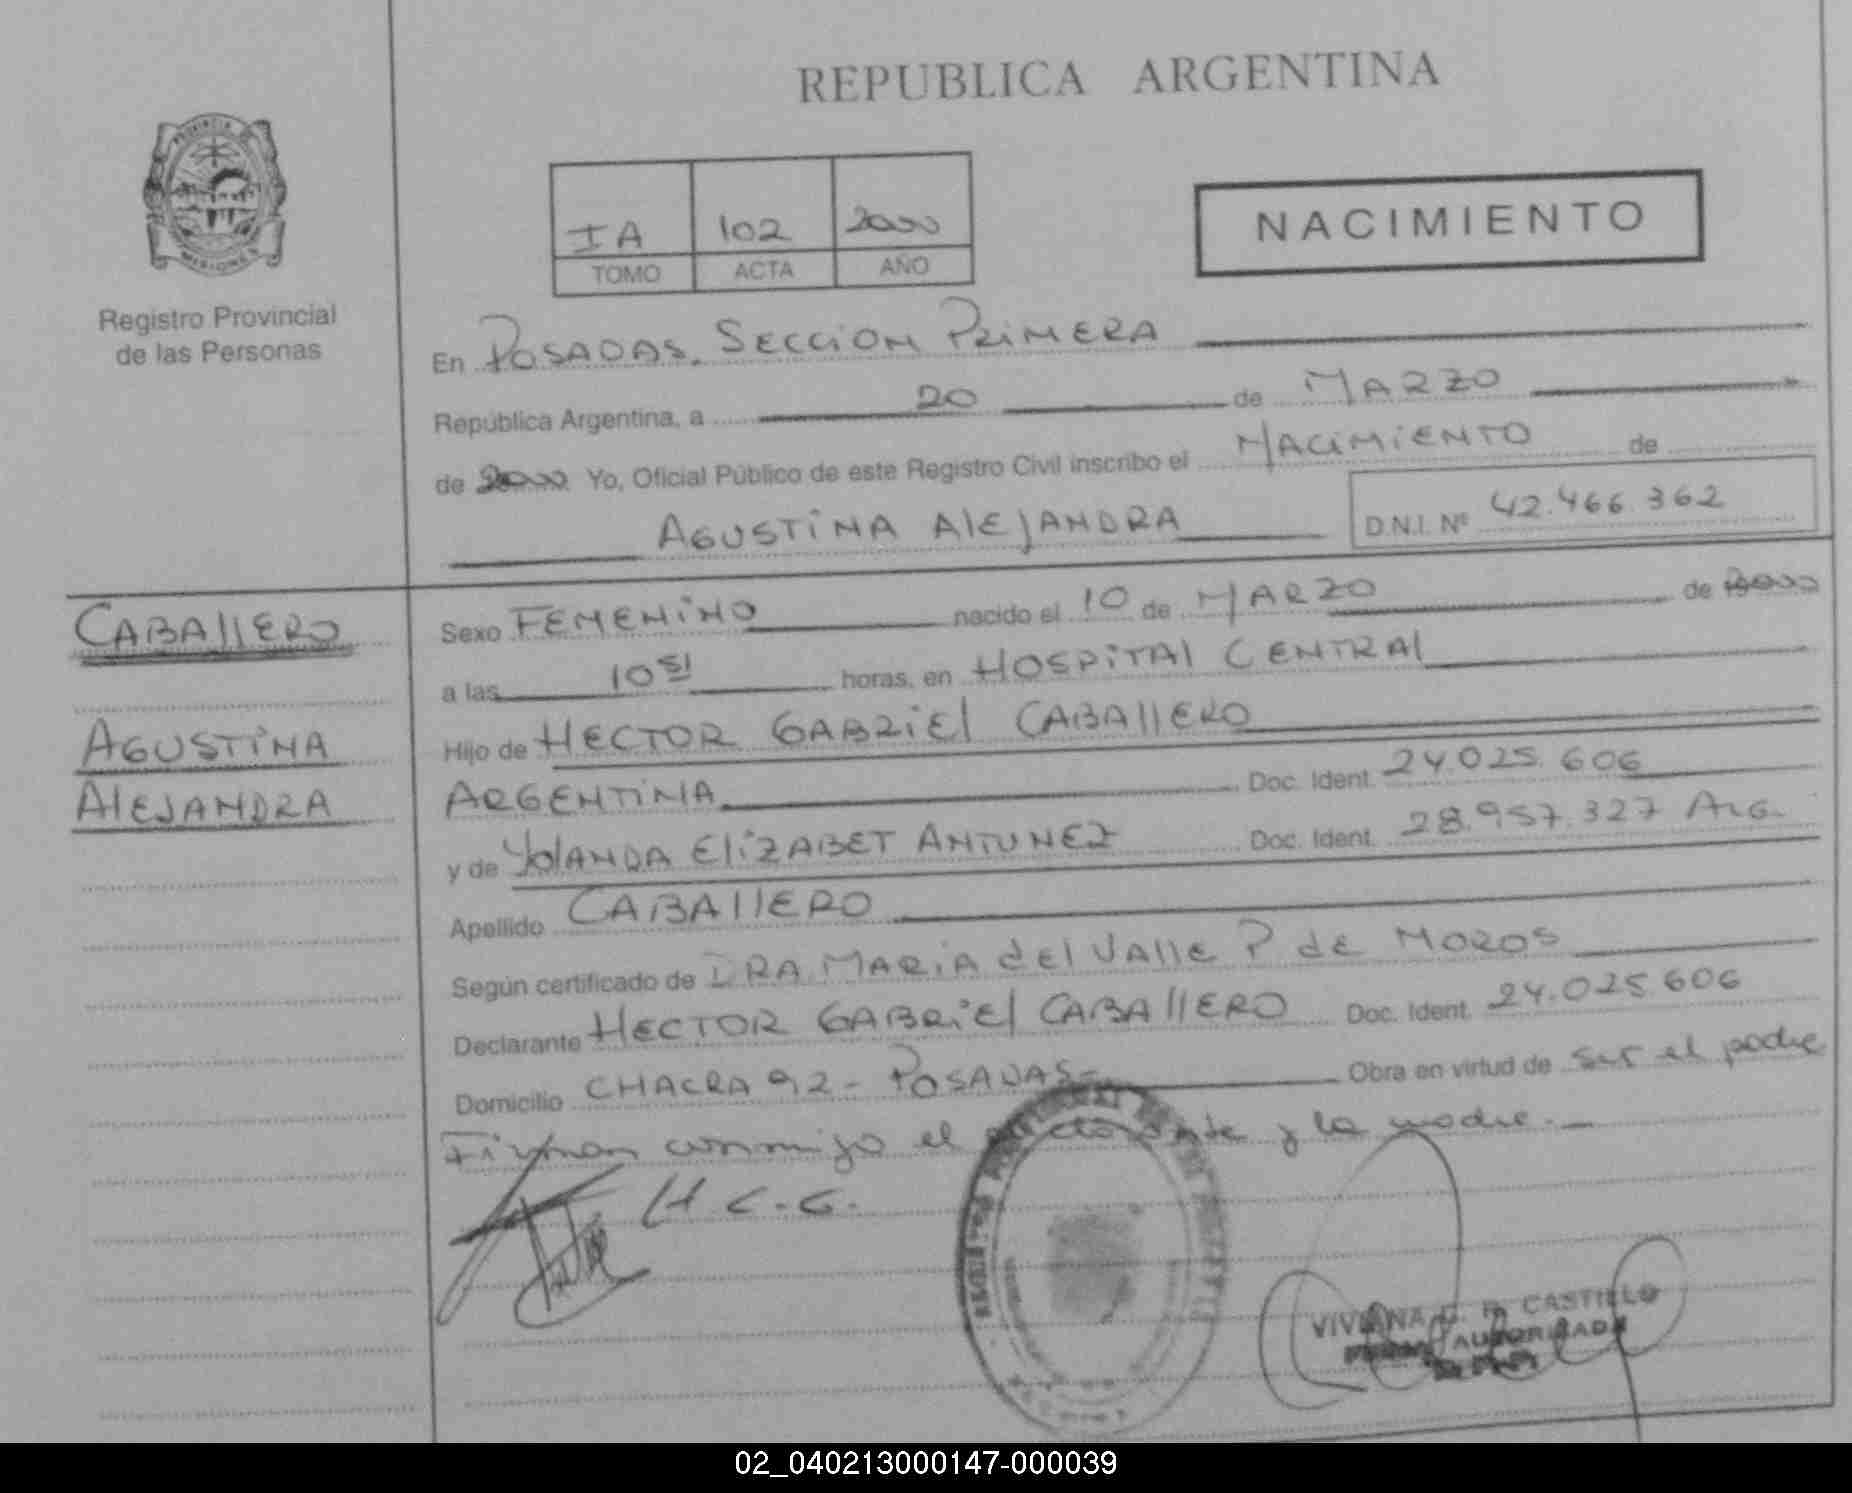 REPUBLICA ARGENTINA
PROVINCIA DE
MISIONES
Registro Provincial
de las Personas
IA 102 2000
TOMO ACTA AÑO
NACIMIENTO
En POSADAS. SECCION PRIMERA
República Argentina, a 20 de MARZO
de 2000 Yo, Oficial Público de este Registro Civil inscribo el NACIMIENTO de
AGUSTINA ALEJANDRA D.N.I. Nº 42.466.362
CABALLERO
AGUSTINA
ALEJANDRA
Sexo FEMENINO nacido el 10 de MARZO de 2000
a las 10 51 horas, en HOSPITAL CENTRAL
Hijo de HECTOR GABRIEL CABALLERO
ARGENTINA Doc. Ident. 24.025.606
y de YOLANDA ELIZABET ANTUNEZ Doc. Ident. 28.957.327 ARG.
Apellido CABALLERO
Según certificado de DRA MARIA del VALLE P de MOROS
Declarante HECTOR GABRIEL CABALLERO Doc. Ident. 24.025.606
Domicilio CHACRA 92 - POSADAS- Obra en virtud de ser el padre
Firman conmigo el declarante y la madre.-
H C.G.
VIVIANA CASTILLO
AUTORIZADA
02_040213000147-000039